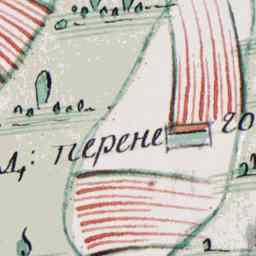 д: перене го